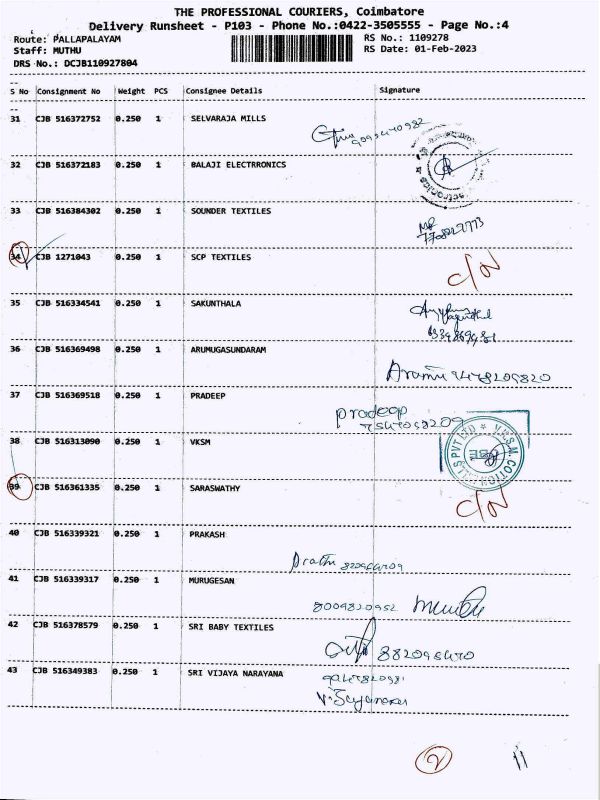 THE PROFESSIONAL COURIERS, Coimbatore
Delivery Runsheet - P103 - Phone No.:0422-3505555 - Page No.:4
Route: PALLAPALAYAM RS No.: 1109278
Staff: MUTHU RS Date: 01-Feb-2023
DRS No.: DCJB110927804
S No Consignment No Weight PCS Consignee Details Signature
31 CJB 516372752 0.250 1 SELVARAJA MILLS
32 CJB 516372183 0.250 1 BALAJI ELECTRRONICS
33 CJB 516384302 0.250 1 SOUNDER TEXTILES
34 CJB 1271043 0.250 1 SCP TEXTILES C/N
35 CJB 516334541 0.250 1 SAKUNTHALA
36 CJB 516369498 0.250 1 ARUMUGASUNDARAM
37 CJB 516369518 0.250 1 PRADEEP pradeep
38 CJB 516313090 0.250 1 VKSM
39 CJB 516361335 0.250 1 SARASWATHY C/N
40 CJB 516339321 0.250 1 PRAKASH
41 CJB 516339317 0.250 1 MURUGESAN
8009820952
42 CJB 516378579 0.250 1 SRI BABY TEXTILES
43 CJB 516349383 0.250 1 SRI VIJAYA NARAYANA
2 11